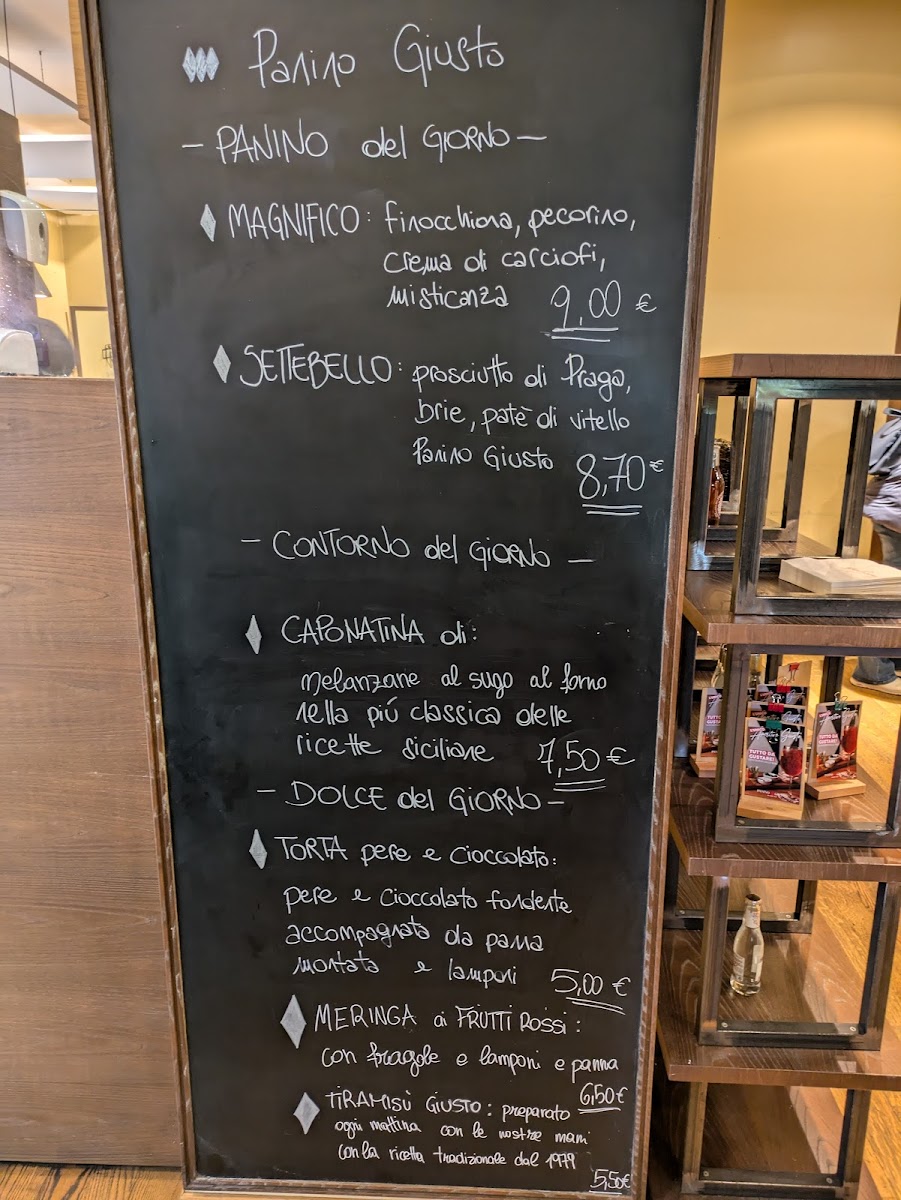 Panino Giusto
- PANINO del GIORNO -
MAGNIFICO: finocchiona, pecorino,
crema di carciofi,
misticanza 9,00 €
SETTEBELLO: prosciutto di Praga,
brie, patè di vitello
Panino Giusto 8,70 €
- CONTORNO del GIORNO -
CAPONATINA di:
melanzane al sugo al forno
nella più classica delle
ricette siciliane 7,50 €
- DOLCE del GIORNO -
TORTA pere e cioccolato:
pere e cioccolato fondente
accompagnata da panna
montata e lamponi 5,00 €
MERINGA ai FRUTTI ROSSI:
con fragole e lamponi e panna
6,50 €
TIRAMISÙ GIUSTO: preparato
ogni mattina con le nostre mani
con la ricetta tradizionale dal 1979
5,50 €
TUTTO DA
GUSTARE!
TUTTO DA
GUSTARE!